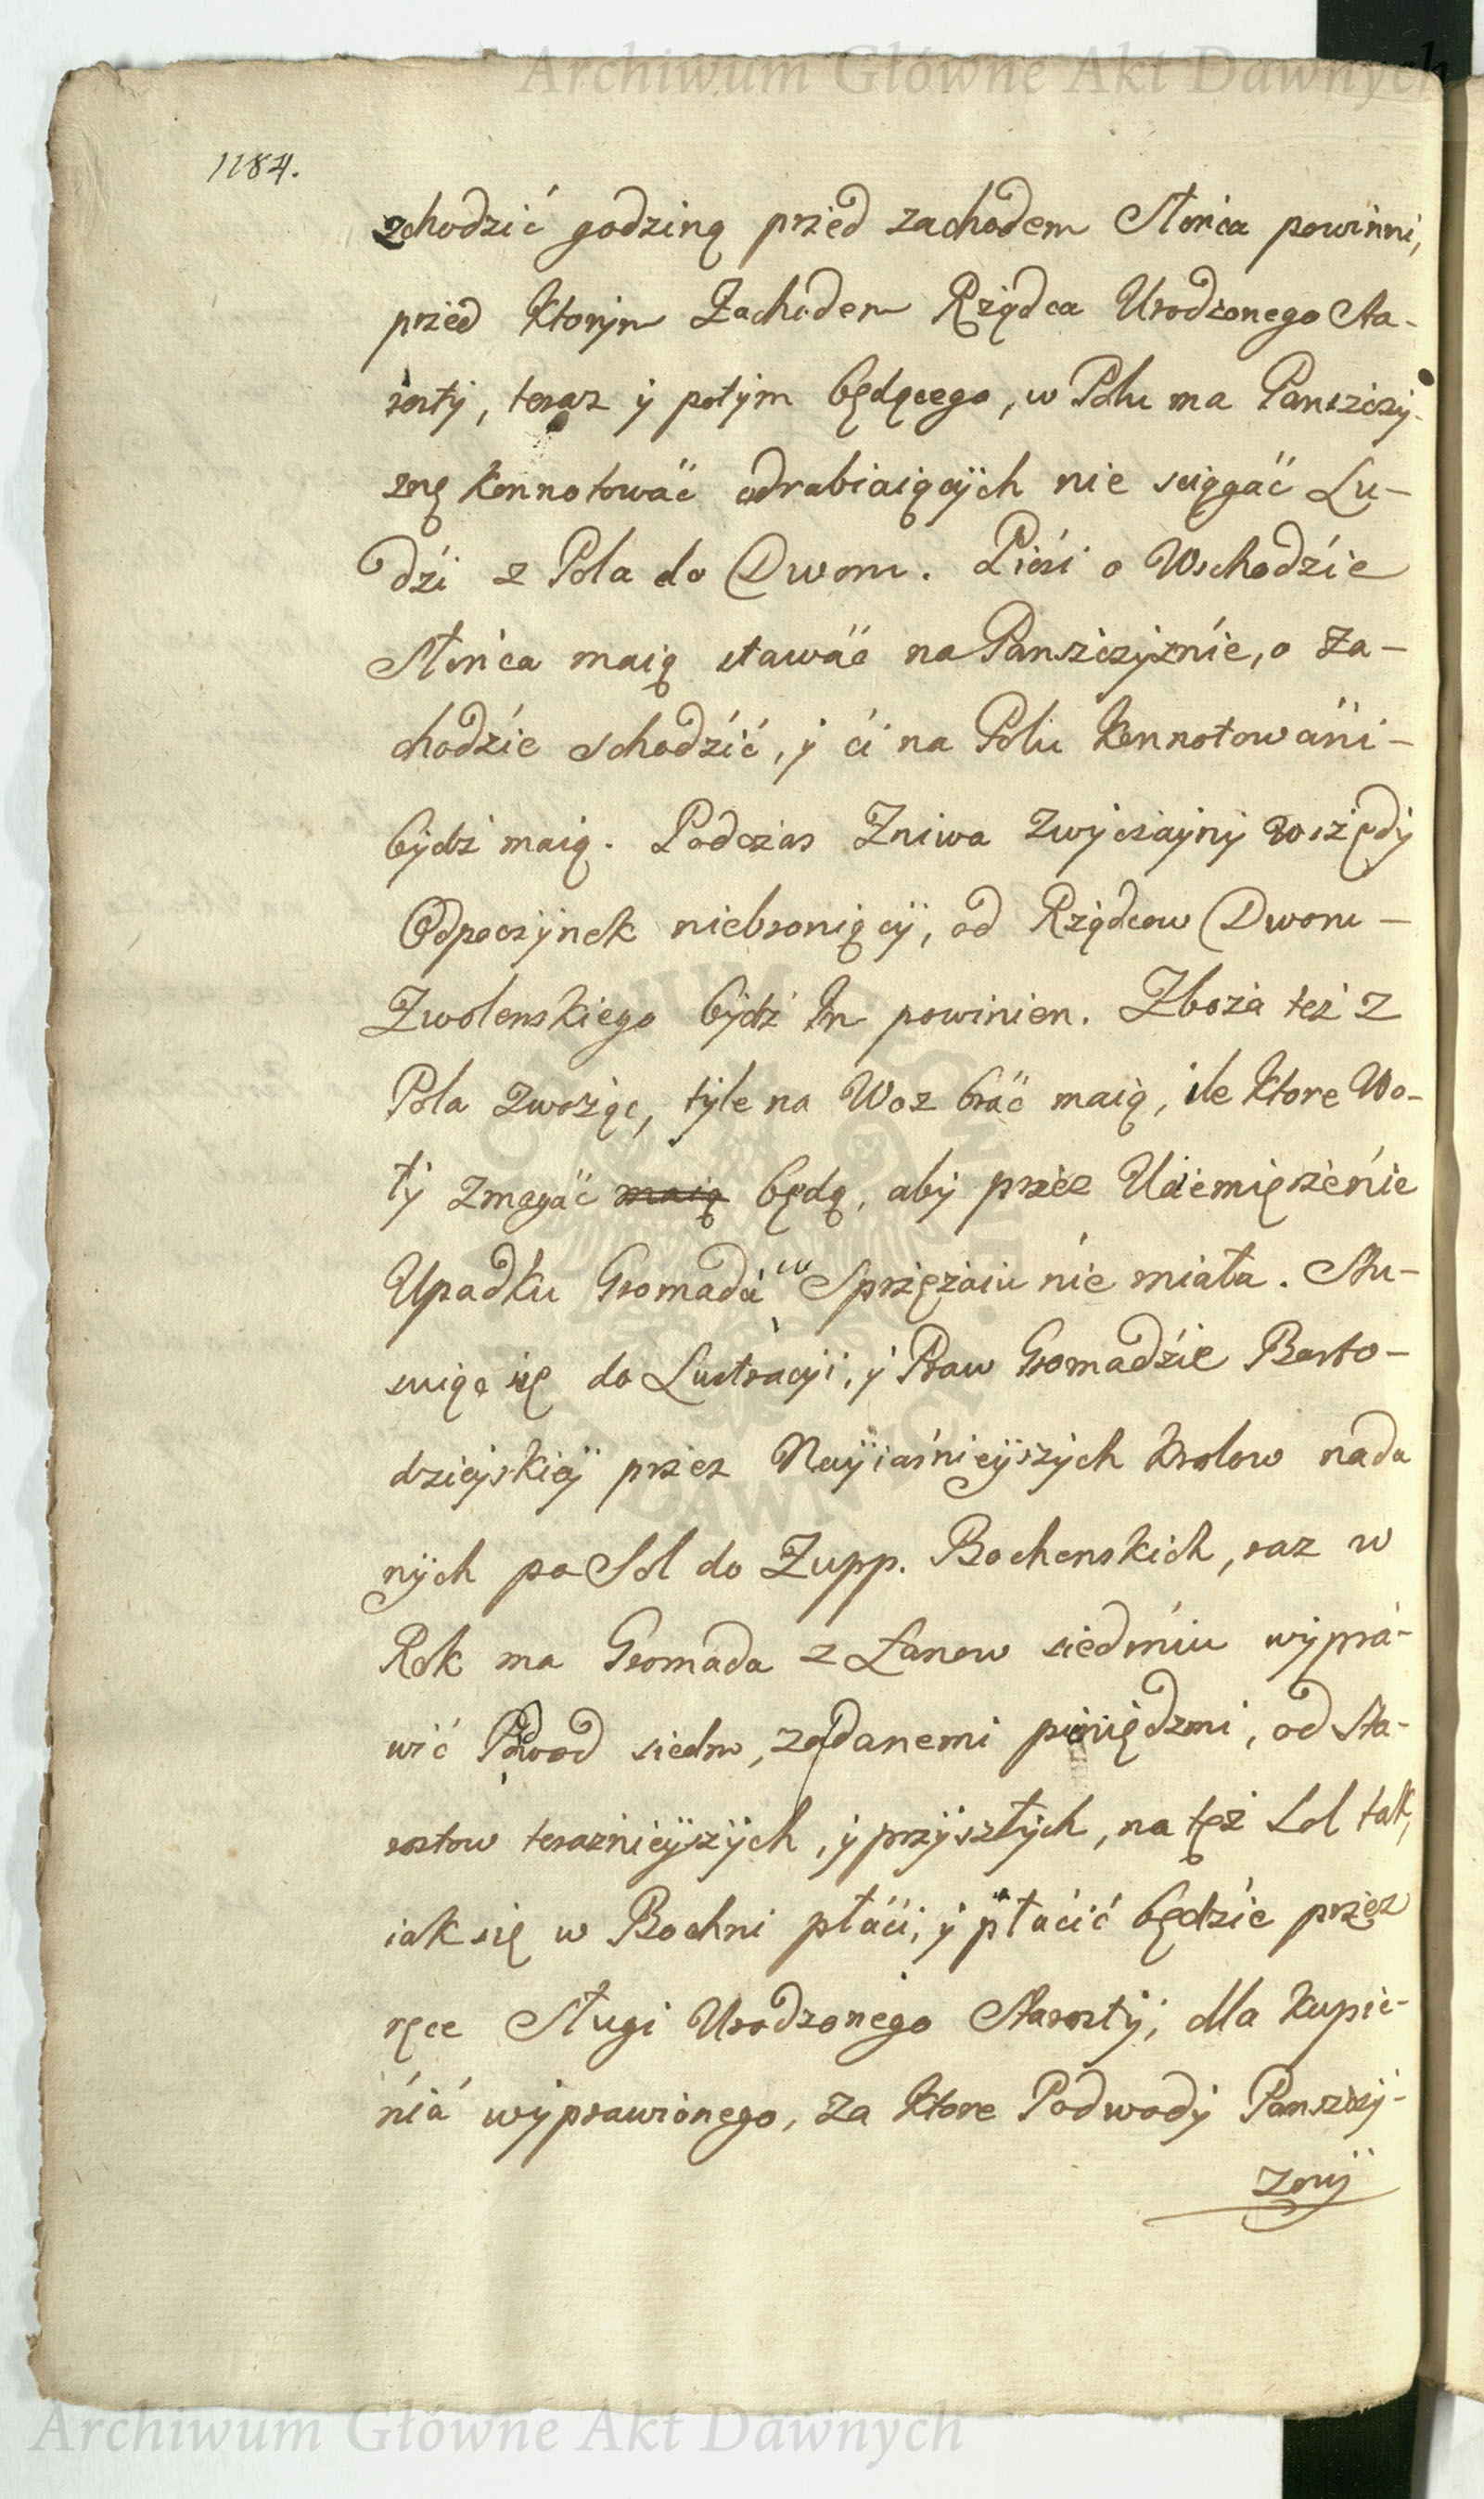 Archiwum Główne Akt Dawnych
1184.
zchodzić godziną przed zachodem Słońca powinni,
przed ktorym Zachodem Rządca Urodzonego Sta-
rosty, teraz y potym będącego, w Polu ma Panszczy-
znę konnotować odrabiaiących nie sciągać Lu-
dźi z Pola do Dworu. Pieśi o Wschodźie
Słońca maią stawać na Panszczyznie, o Za-
chodźie schodźić, y ći na Polu konnotowáni-
bydź maią. Podczas Zniwa zwyczayny wszędy
Odpoczynek niebroniący, od Rządcow Dworu-
Zwolenskiego bydź Im powinien. Zboża też z
Pola zwożąc, tyle na Woz brać maią, ile ktore Wo-
ły zmagać maią będą, aby przez Uciemiężenie
Upadku Gromada w Sprzężaiu nie miała. Stu-
suiąc się do Lustracyi, y Praw Gromadźie Barto-
dzieyskiey przez Nayiaśnieyszych Krolow nada
nych po Sol do Zupp. Bochenskich, raz w
Rok ma Gromada z Łanow siedmiu wypra-
wić Podwod siedm, za danemi pieniędzmi, od Sta-
rostow teraznieyszych, y przyszłych, na tęż Sol tak,
iak się w Bochni płaći, y płaćić będźie przez
ręce Sługi Urodzonego Starosty, dla kupie-
nia wyprawionego, za ktore Podwody Panszczy-
zny
Archiwum Główne Akt Dawnych